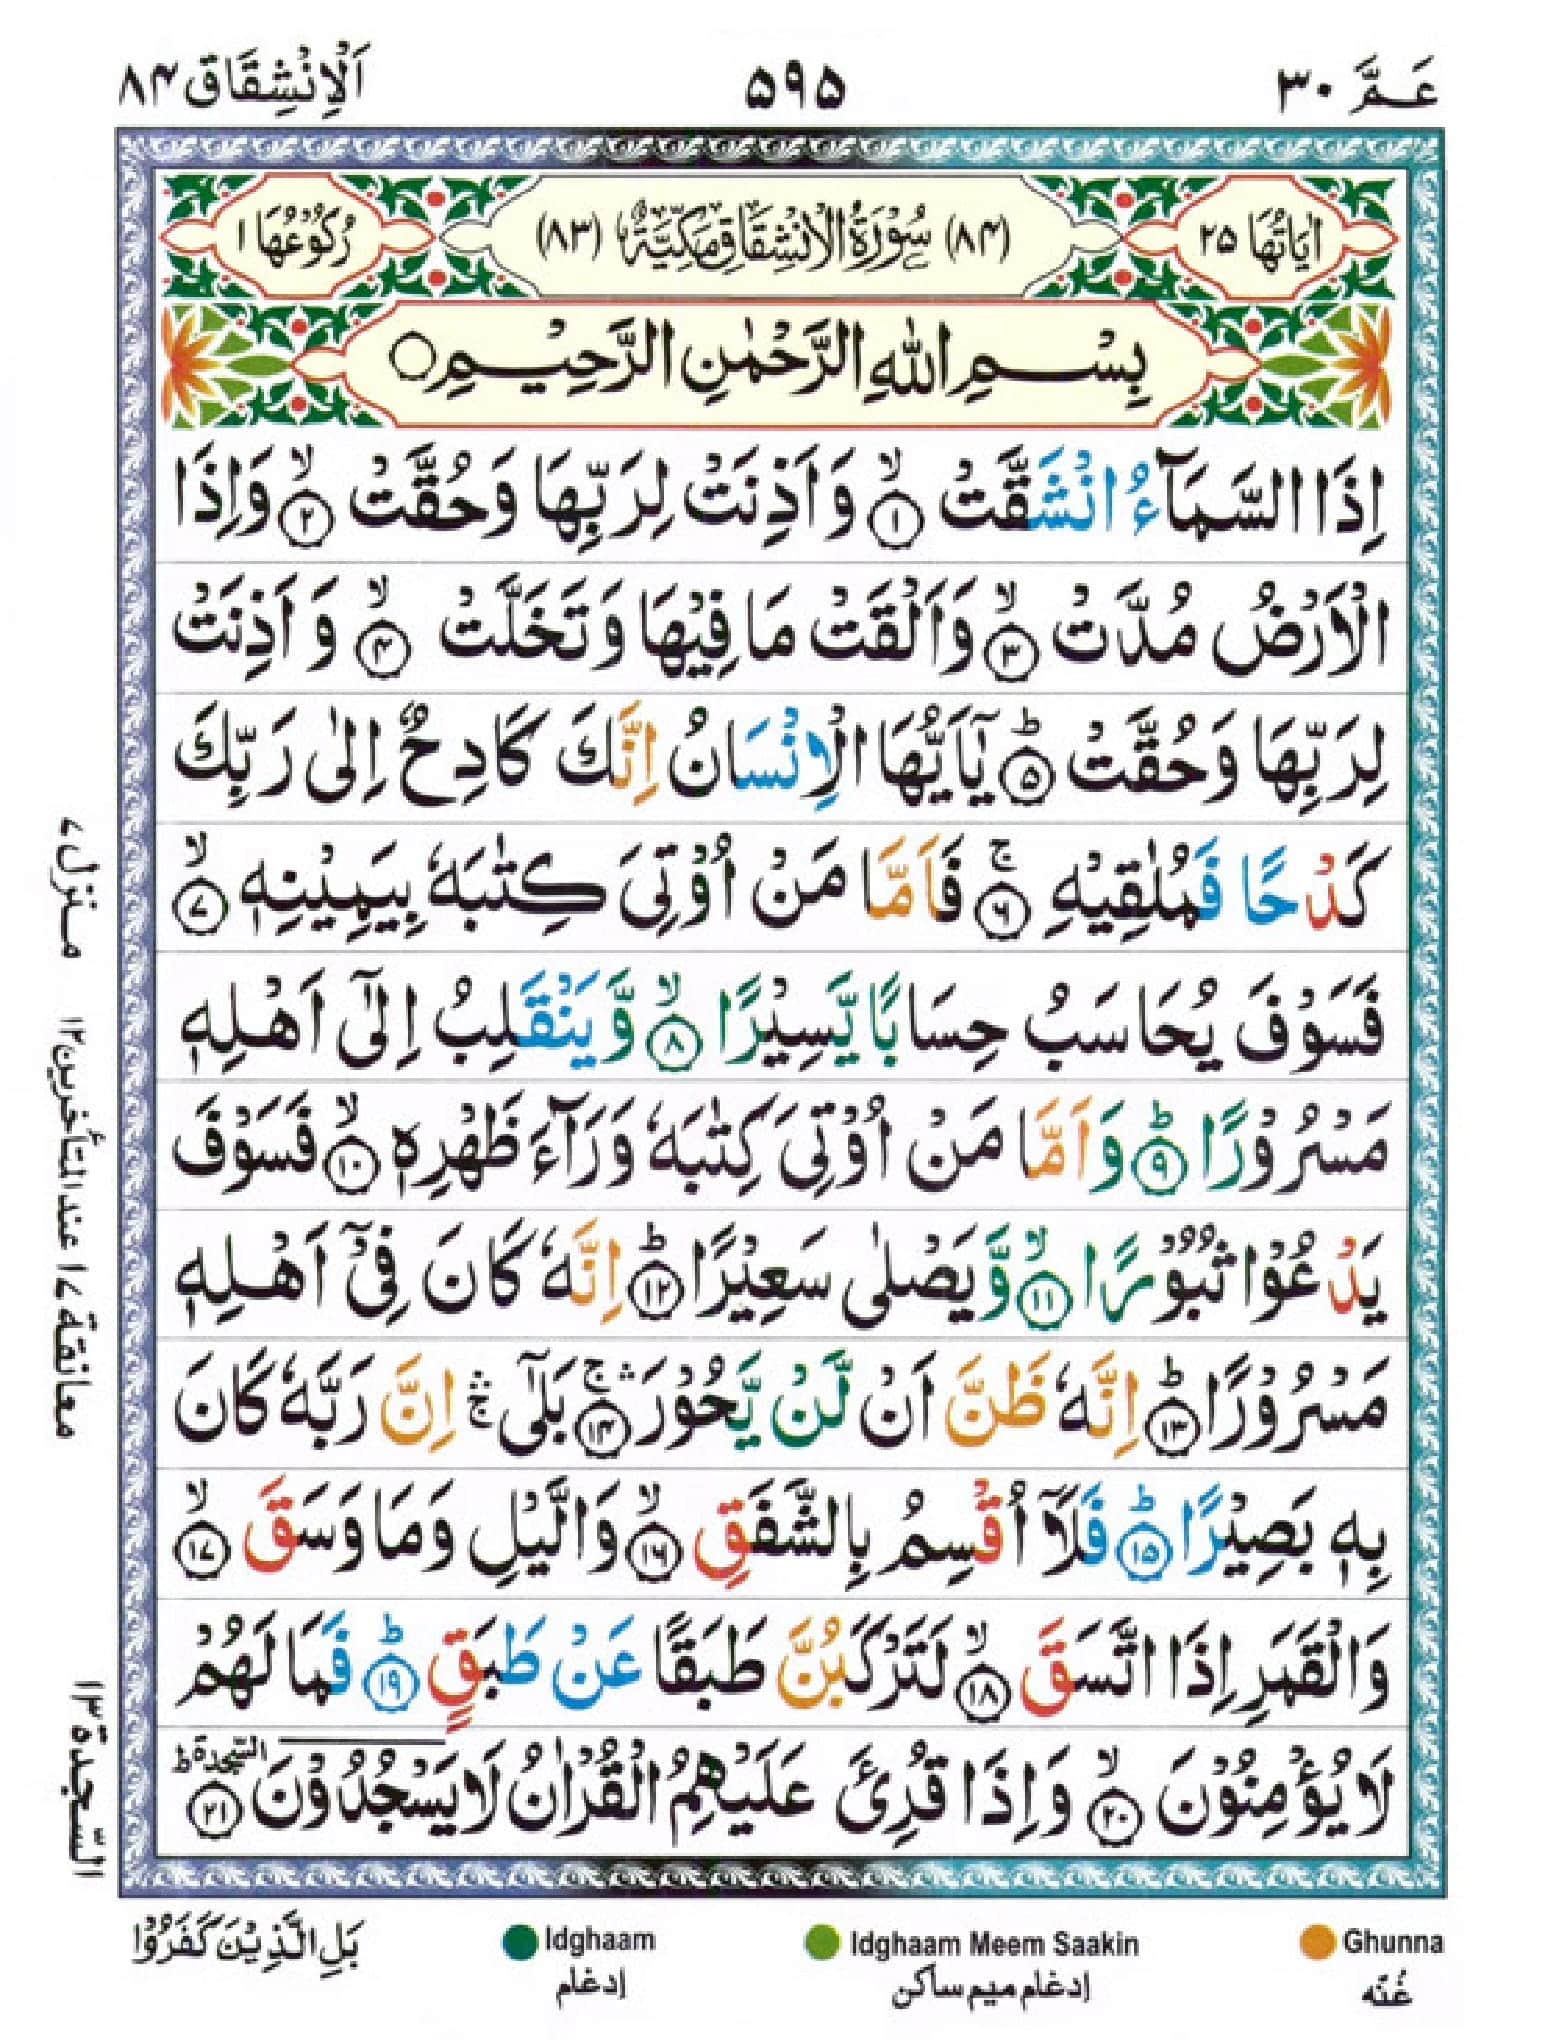 عَـمَّ ٣٠
٥٩٥
اَلْاِنْشِقَاق ٨٤
اٰيَاتُهَا ٢٥
(٨٤) سُوْرَةُ الْاِنْشِقَاقِ مَكِّيَّةٌ (٨٣)
رُكُوْعُهَا ١
بِسْمِ اللّٰهِ الرَّحْمٰنِ الرَّحِيْمِ ○
اِذَا السَّمَآءُ انْشَقَّتْ ۙ﴿١﴾ وَاَذِنَتْ لِرَبِّهَا وَحُقَّتْ ۙ﴿٢﴾ وَاِذَا
الْاَرْضُ مُدَّتْ ۙ﴿٣﴾ وَاَلْقَتْ مَا فِيْهَا وَتَخَلَّتْ ۙ﴿٤﴾ وَاَذِنَتْ
لِرَبِّهَا وَحُقَّتْ ؕ﴿٥﴾ يٰۤاَيُّهَا الْاِنْسَانُ اِنَّكَ كَادِحٌ اِلٰى رَبِّكَ
كَدْحًا فَمُلٰقِيْهِ ۚ﴿٦﴾ فَاَمَّا مَنْ اُوْتِىَ كِتٰبَهٗ بِيَمِيْنِهٖ ۙ﴿٧﴾
فَسَوْفَ يُحَاسَبُ حِسَابًا يَّسِيْرًا ۙ﴿٨﴾ وَّيَنْقَلِبُ اِلٰٓى اَهْلِهٖ
مَسْرُوْرًا ؕ﴿٩﴾ وَاَمَّا مَنْ اُوْتِىَ كِتٰبَهٗ وَرَآءَ ظَهْرِهٖ ۙ﴿١٠﴾ فَسَوْفَ
يَدْعُوْا ثُبُوْرًا ۙ﴿١١﴾ وَّيَصْلٰى سَعِيْرًا ؕ﴿١٢﴾ اِنَّهٗ كَانَ فِىْٓ اَهْلِهٖ
مَسْرُوْرًا ؕ﴿١٣﴾ اِنَّهٗ ظَنَّ اَنْ لَّنْ يَّحُوْرَ ۛۚ﴿١٤﴾ بَلٰٓى ۛۚ اِنَّ رَبَّهٗ كَانَ
بِهٖ بَصِيْرًا ؕ﴿١٥﴾ فَلَآ اُقْسِمُ بِالشَّفَقِ ۙ﴿١٦﴾ وَالَّيْلِ وَمَا وَسَقَ ۙ﴿١٧﴾
وَالْقَمَرِ اِذَا اتَّسَقَ ۙ﴿١٨﴾ لَتَرْكَبُنَّ طَبَقًا عَنْ طَبَقٍ ؕ﴿١٩﴾ فَمَا لَهُمْ
لَا يُؤْمِنُوْنَ ۙ﴿٢٠﴾ وَاِذَا قُرِئَ عَلَيْهِمُ الْقُرْاٰنُ لَا يَسْجُدُوْنَ السّجدة ؕ﴿٢١﴾
منزل ٧
معانقة ١٧ عند المتأخرين ١٢
السّجدة ١٣
بَلِ الَّذِيْنَ كَفَرُوْا
Idghaam
إدغام
Idghaam Meem Saakin
إدغام ميم ساكن
Ghunna
غُنّه